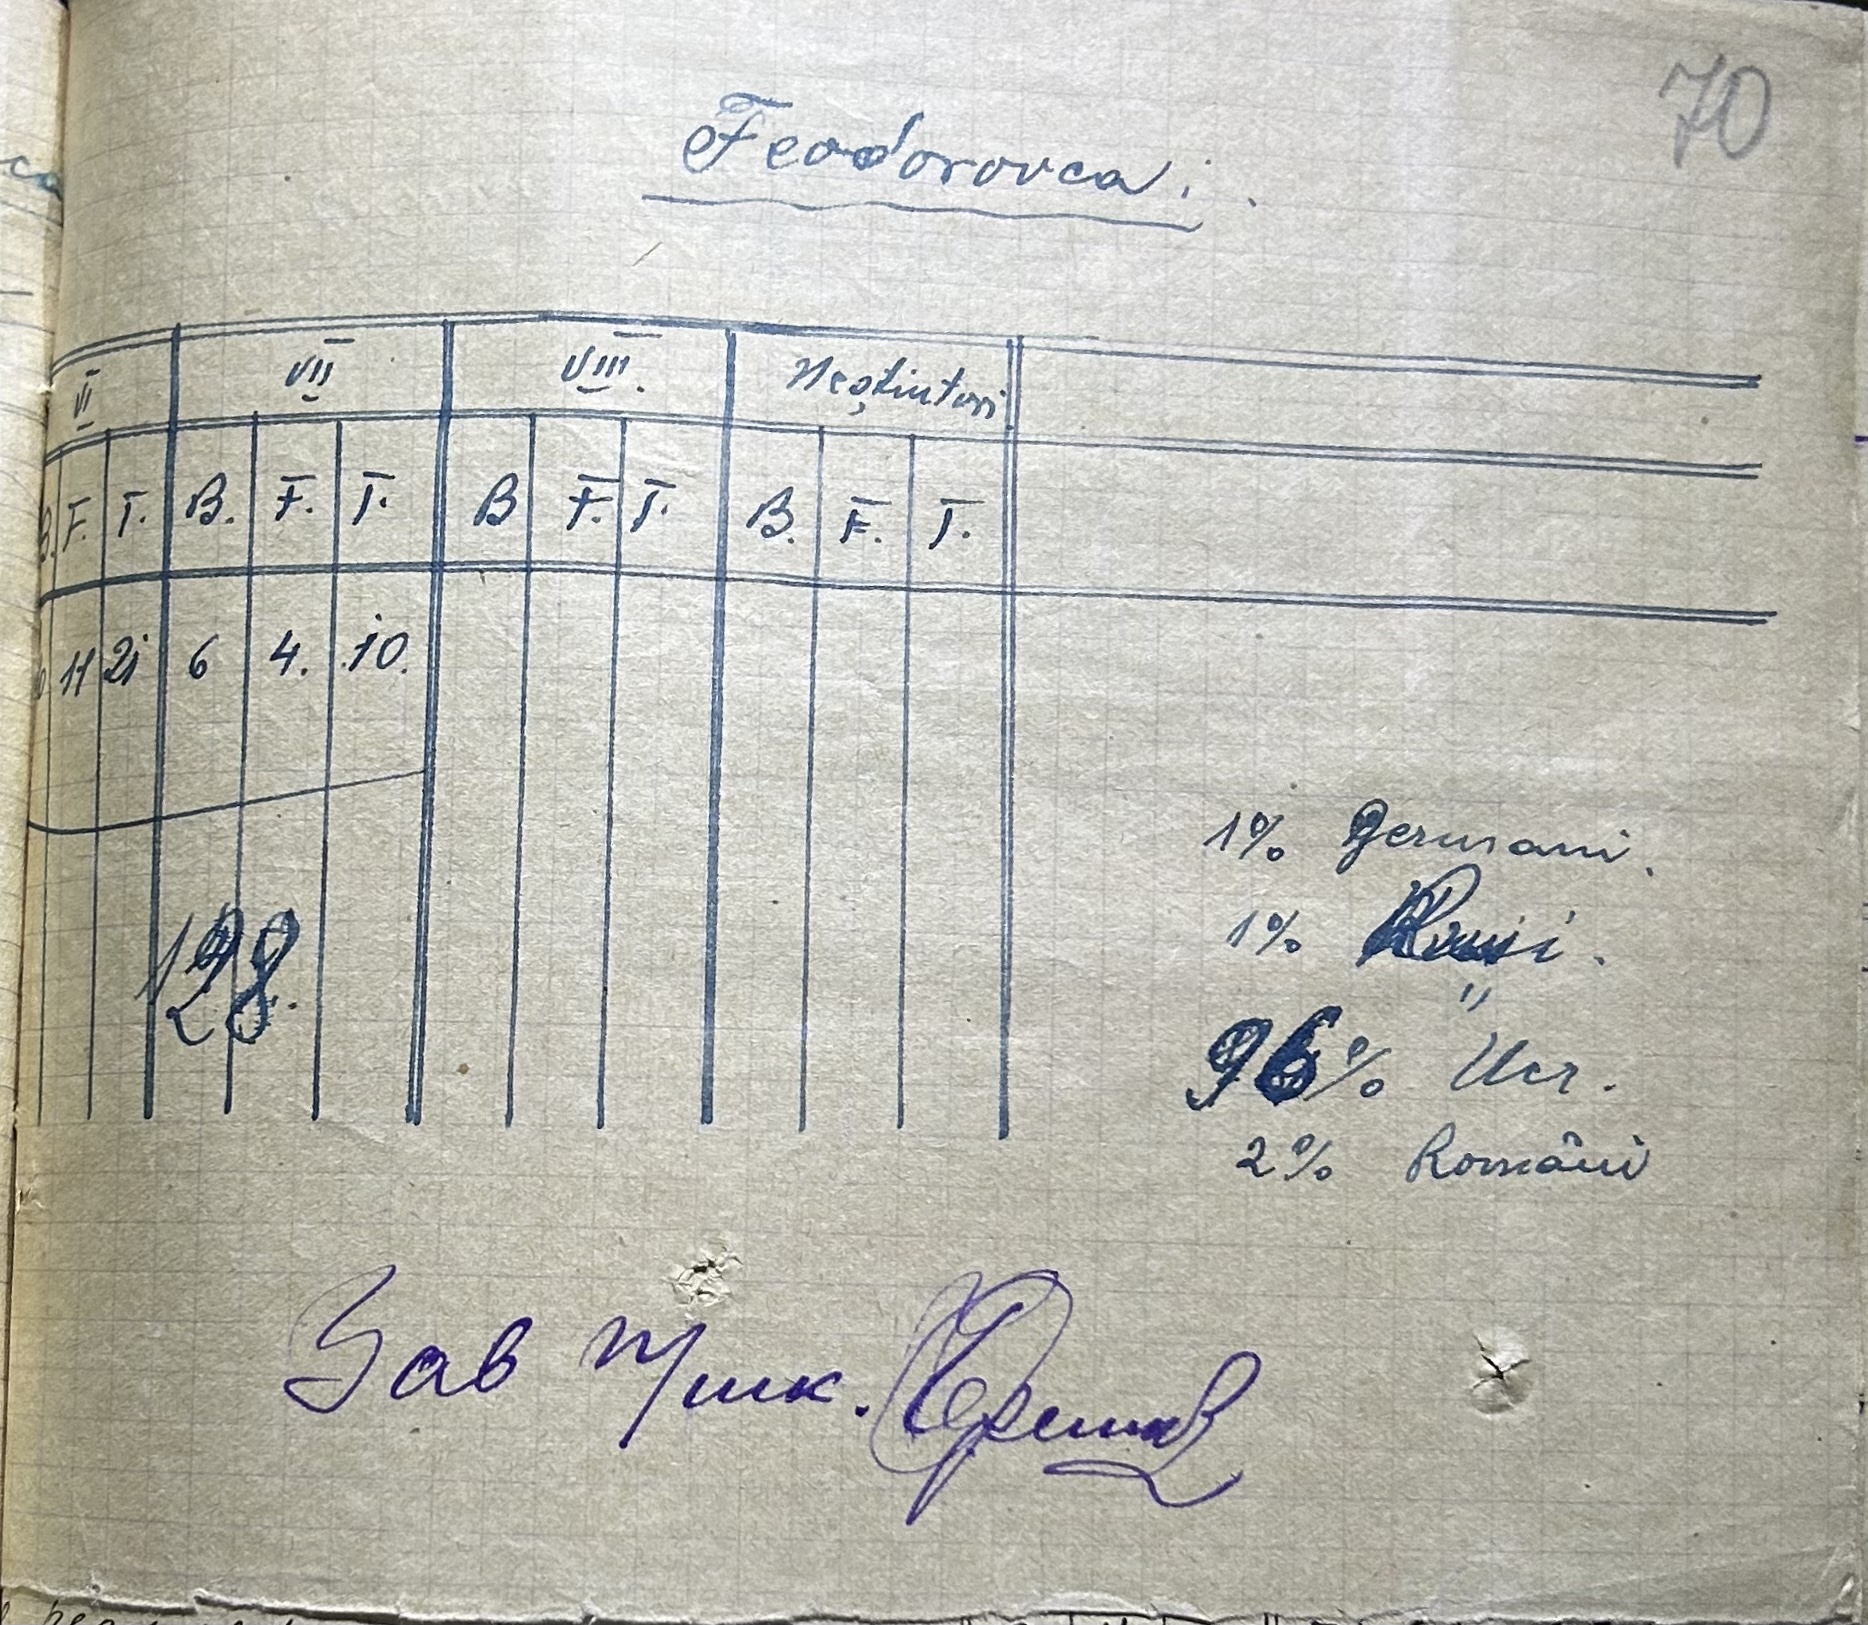 70
Feodorovca.
VI VII VIII. Neștiutori
B. F. T. B. F. T. B F. T. B. F. T.
11 21 6 4. 10.
1% Germani.
128.
1% Ruși.
"
96% Ucr.
2% Români
Зав